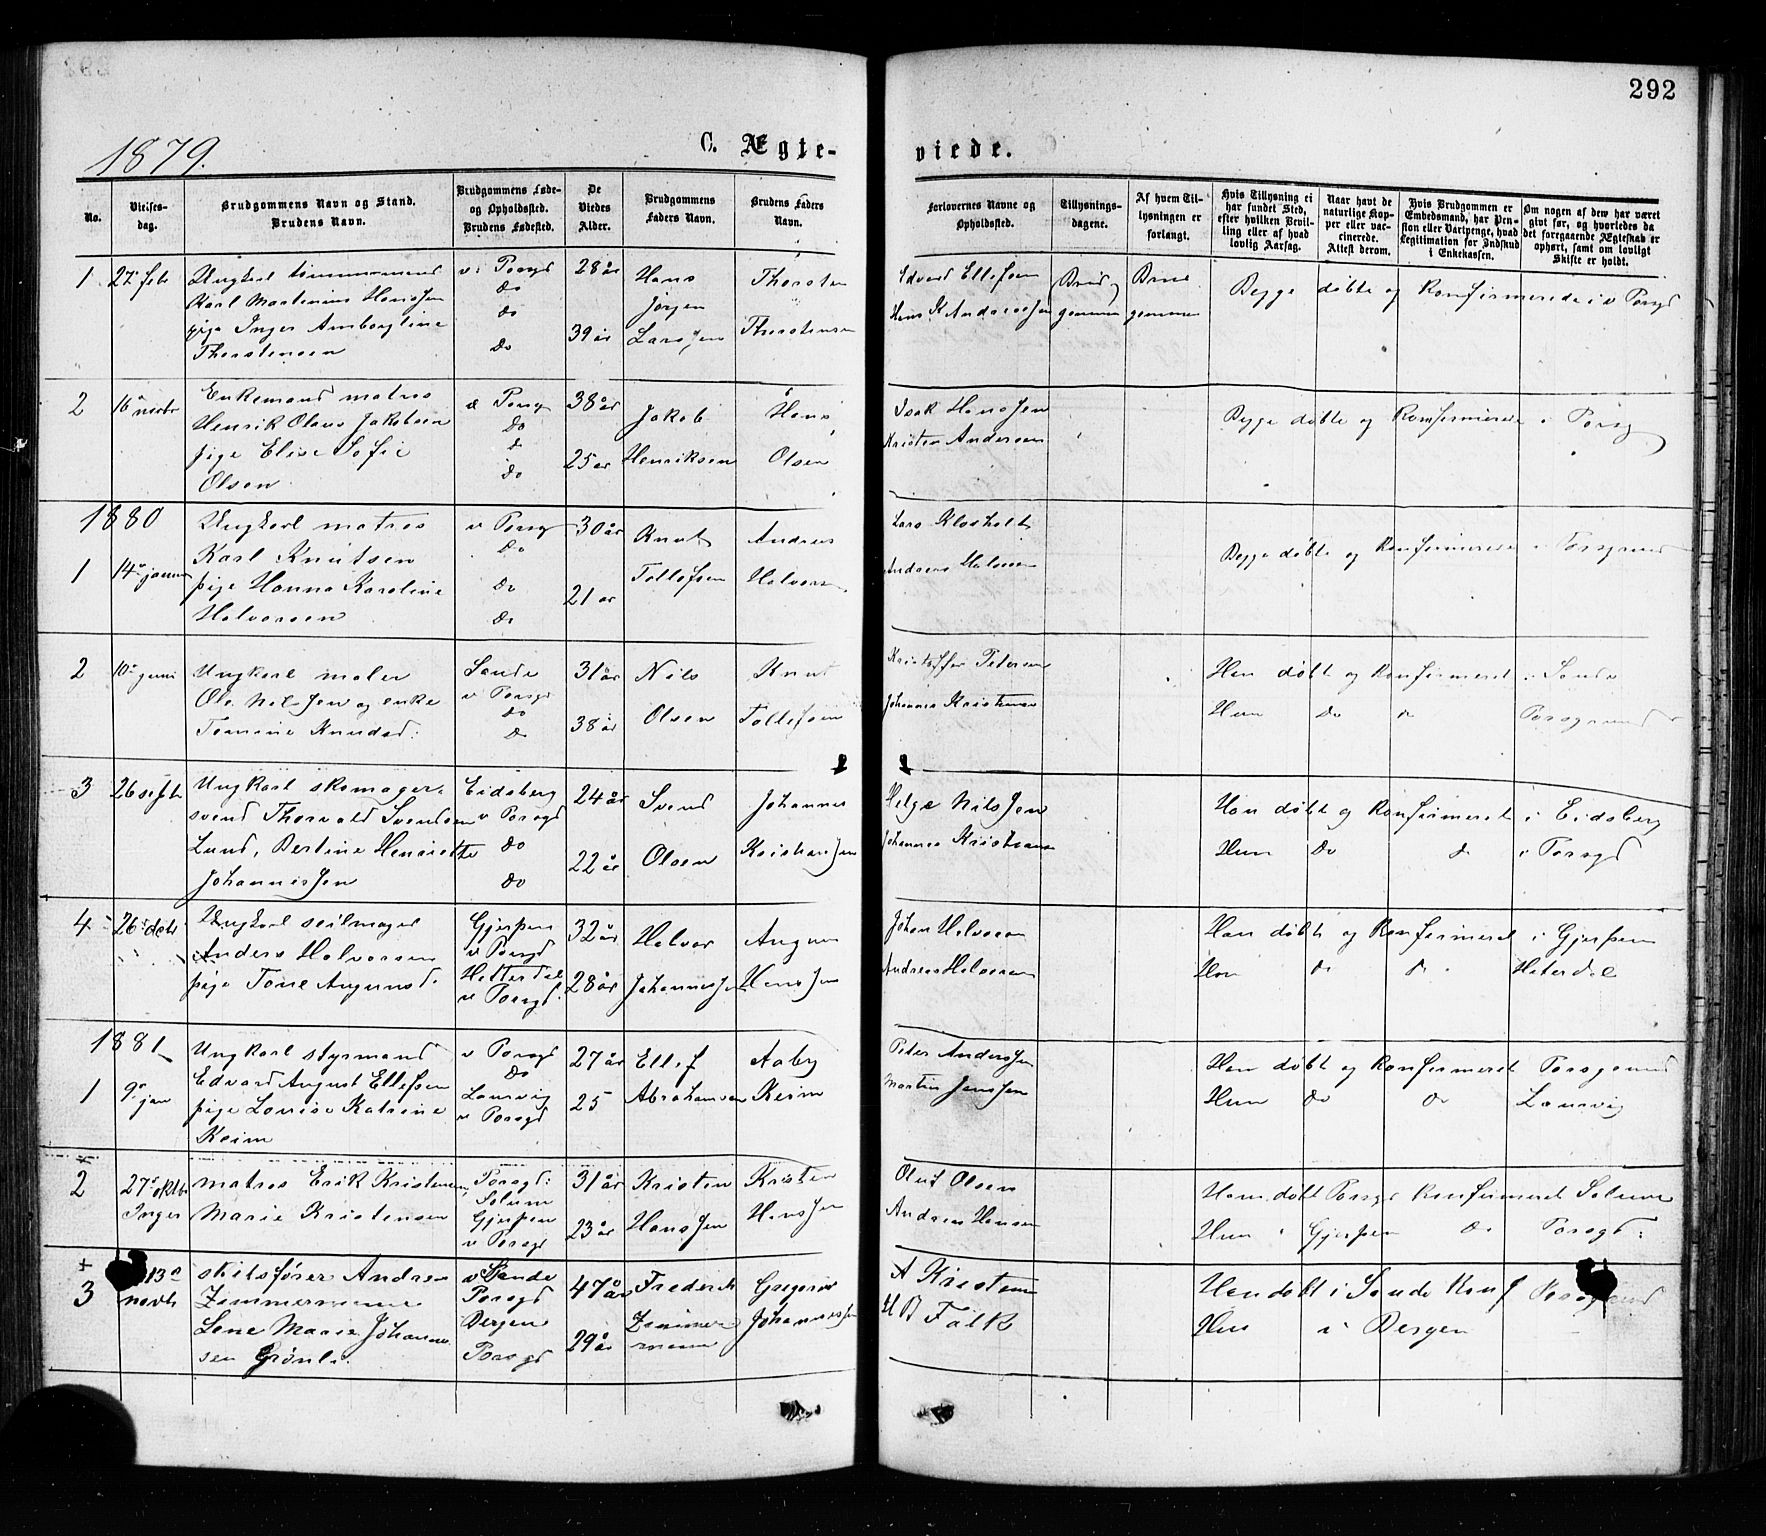 292
1879.
C. Ægte-
viede.
No.
Vielses-
dag.
Brudgommens Navn og Stand.
Brudens Navn.
Brudgommens Føde-
og Opholdssted.
Brudens Fødested.
De
Viedes
Alder.
Brudgommens
Faders Navn.
Brudens Faders
Navn.
Forlovernes Navne og
Opholdssted.
Tillysnings-
dagene.
Af hvem Til-
lysningen er
forlangt.
Hvis Tillysning ei
har fundet Sted,
efter hvilken Bevil-
ling eller af hvad
lovlig Aarsag.
Naar havt de
naturlige Kop-
per eller vac-
cinerede.
Attest derom.
Hvis Brudgommen er
Embedsmand, har Pen-
sion eller Vartpenge, hvad
Legitimation for Indskud
i Enkekassen.
Om nogen af dem har været
givt før, og hvorledes da
det foregaaende Ægteskab er
ophørt, samt om lovligt
Skifte er holdt.
1 27 feb Ungkarl tømmermand v. Porsgd 28 år Hans Thorsten Edvard Ellefsen Brud Brud Begge døbte og Konfirmerede i v Porsgd
Karl Martinius Hanssen Do Jørgen
pige Inger Amborgtine do 39 år Larssen Thorstensen Hans K Anderssen gommen gommen
Thorstensen Do
2 16 novbr Enkemand matros v Porsg 38 år Jakob Hans Isak Hanssen Begge døbte og Konfirmerede i Porsg
Henrik Olaus Jakobsen Do
pige Elise Sofie d 25 år Henriksen Olsen Kristen Andersen
Olsen Do
1880 Ungkarl matros v Porsg 30 år Knut Andreas Lars Klosholt
Karl Knutsen Do Begge døbte og Konfirmerede i Porsgrund
1 14 januar pige Hanna Karoline Do 21 år Tollefsen Halvors Anders Halvorsen
Halvorsen Do
2 10 juni Ungkarl maler Sande 31 år Nils Knut Kristoffer Petersen Han døbt og Konfirmeret i Sande
Ole Nilssen og enke v Porsgd
Tomine Knudsd: Do 38 år Olsen Tollefsen Johannes Kristensen Hun Do Do Porsgrund
3 26 septb Ungkarl skomager- Eidsberg 24 år Svend Johannes Helge Nilssen Han døbt og Konfirmeret i Eidsberg
svend Thorvald Svendsen v Porsgd
Lund, Bertine Henriette Do 22 år Olsen Kristianssen Johannes Kristiansen Hun Do Do i Porsgd
Johannessen Do
4 26 Ungkarl seilmager Gjerpen 32 år Halvor Augun Johan Halvorsen Han døbt og Konfirmeret i Gjerpen
Anders Halvorsen v Porsgd
pige Tone Augunsd. Hitterdal 28 år Johannessen Hanssen Andreas Halvorsen Hun Do Do Hiterdal
v Porsgd.
1881 Ungkarl styrmand v Porsgd 27 år Ellef Aaby Peter Anderssen Han døbt og Konfirmeret Porsgrund
1 9 jan Edvard August Ellefsen Do
pige Lovise Katrine Laurvig 25 Abrahamsen Keim Martin Janssen Hun Do Do Laurvig
Keim v Porsgd
2 27 oktbr matros Erik Kristensen Porsgd: 31 år Kristen Kristen Oluf Olsen Han døbt Porsgd Konfirmeret Solum
Inger Marie Kristensen Solum
Gjerpen 23 år Hanssen Hanssen Andreas Hansen Hun i Gjerpen Do Porsgd:
v Porsgd
+
3 13 novb skibsfører Andreas v Sande 47 år Frederik Gregorius A Kristensen Han døbt i Sande Konf Porsgrund
Zimmermann Porsgd
Lene Marie Johannes Bergen 29 år Zimmer Johannessen H B Falk Hun i Bergen
sen Grønli. Porsgd mann